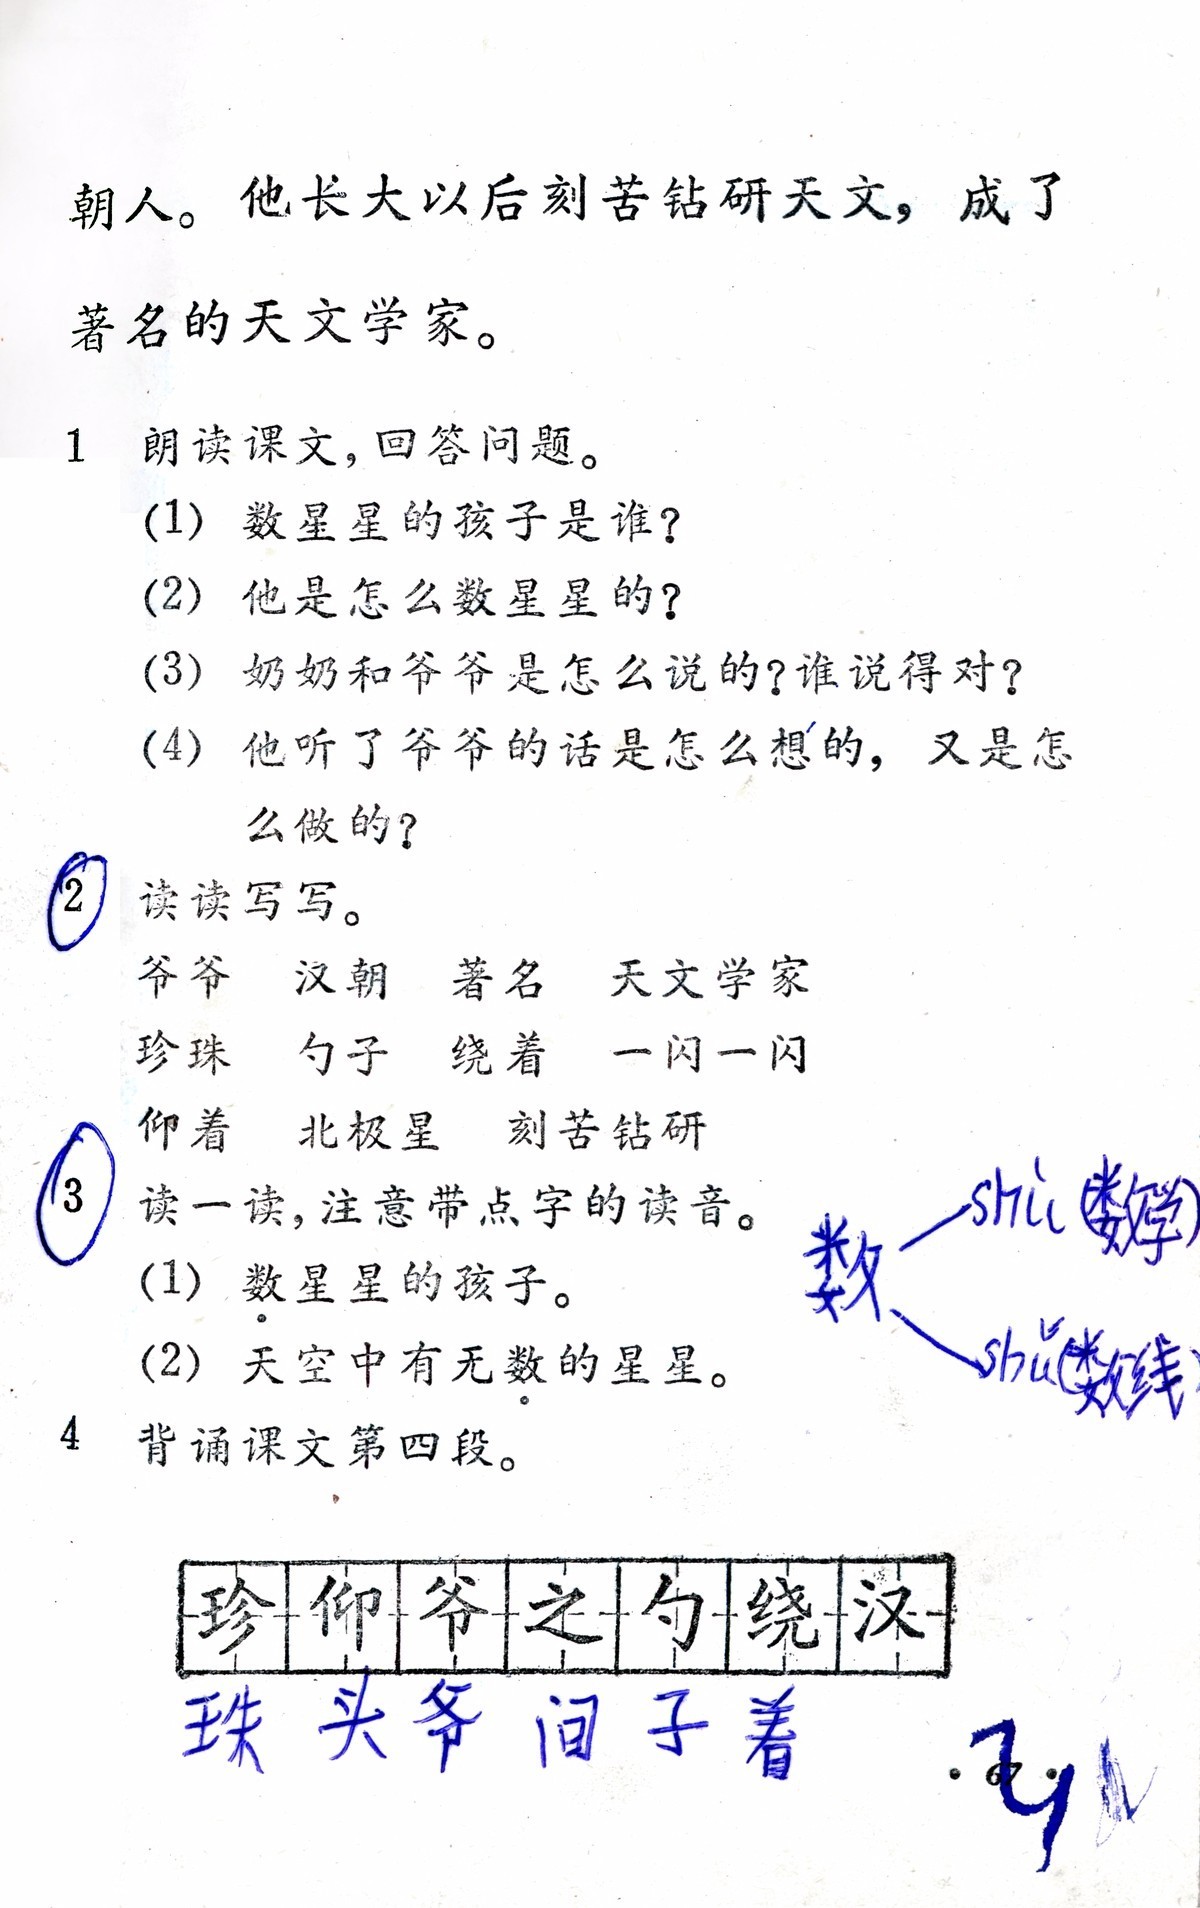 朝人。他长大以后刻苦钻研天文，成了
著名的天文学家。
1 朗读课文，回答问题。
(1) 数星星的孩子是谁？
(2) 他是怎么数星星的？
(3) 奶奶和爷爷是怎么说的？谁说得对？
(4) 他听了爷爷的话是怎么想的，又是怎
么做的？
2 读读写写。
爷爷 汉朝 著名 天文学家
珍珠 勺子 绕着 一闪一闪
仰着 北极星 刻苦钻研
3 读一读，注意带点字的读音。
(1) 数星星的孩子。
(2) 天空中有无数的星星。
数
(数学)
shǔ(数线)
4 背诵课文第四段。
珍仰爷之勺绕汉
珠 头 爷 间 子 着